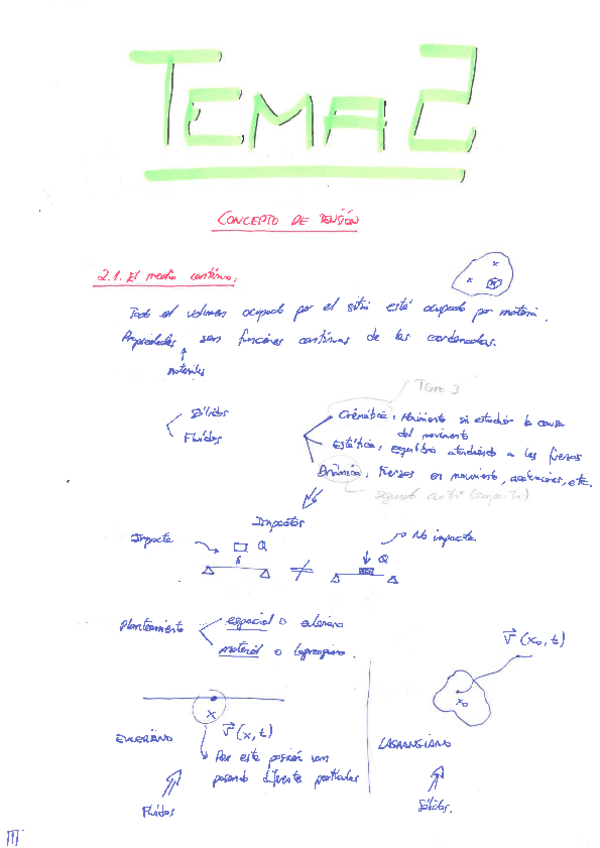 TEMA 2
CONCEPTO DE TENSIÓN
2.1. El medio continuo:
Todo el volumen ocupado por el sitio está ocupado por materia.
Propiedades son funciones continuas de las coordenadas.
materiales
Tema 3
Sólidos
Fluidos
Cinemática: Movimiento sin estudiar la causa
del movimiento
Estática: equilibrio atendiendo a las fuerzas
Dinámica: fuerzas en movimiento, aceleraciones, etc.
segundo
Impactos
Impacta
Q
No impacta
Q
Planteamiento
espacial o euleriano
material o lagrangiano.
v (x, t)
EULERIANO
Por esta posición van
pasando diferentes partículas
Fluidos
v (x0, t)
x0
LAGRANGIANO
Sólidos.